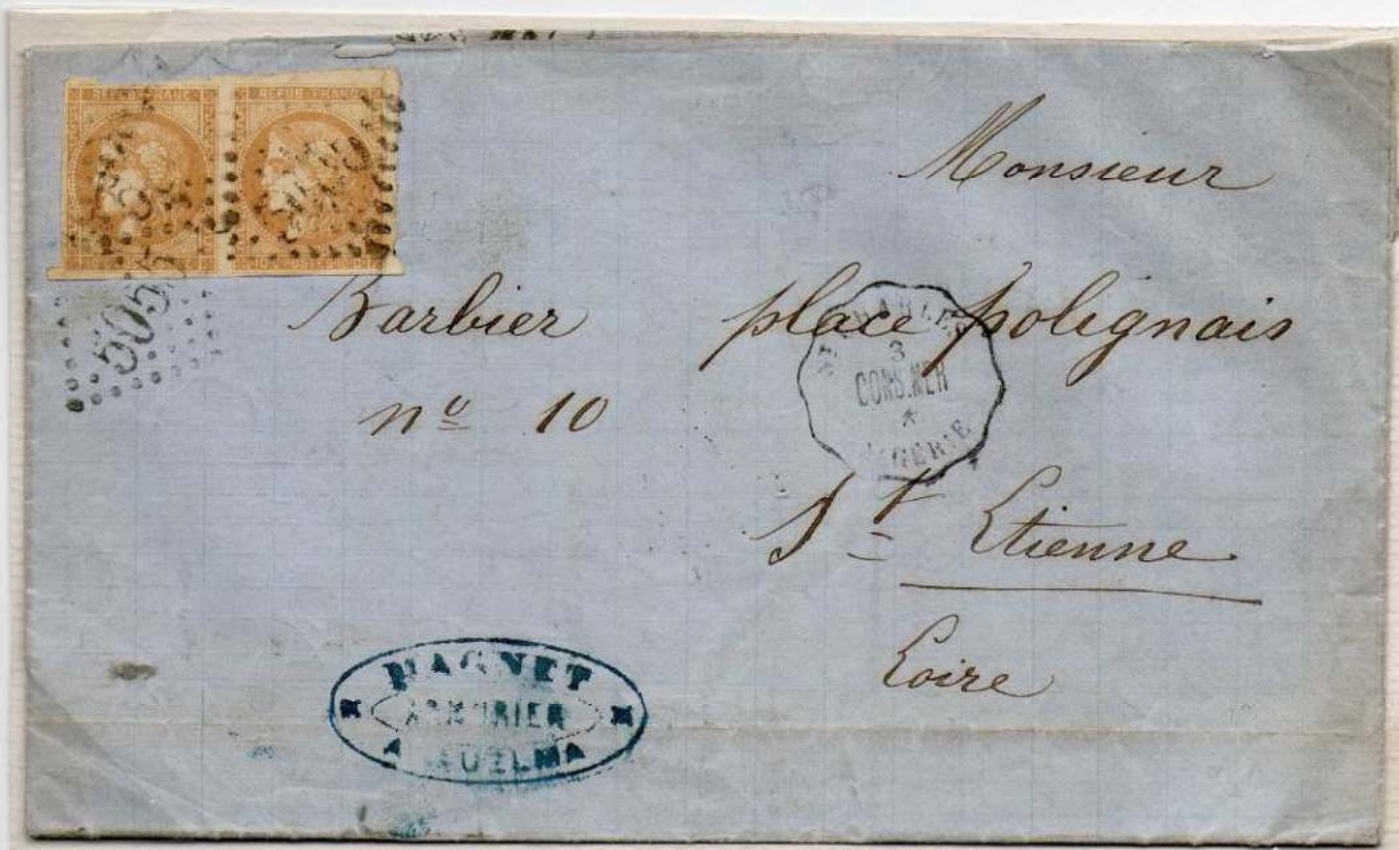 REPUB. FRANC. REPUB. FRANC.
5055
Monsieur
Barbier place polignais
n° 10
St CHARLES
3
CONS.MER
ALGERIE
St Etienne
Loire
MAGNET
ARMURIER
A GUELMA